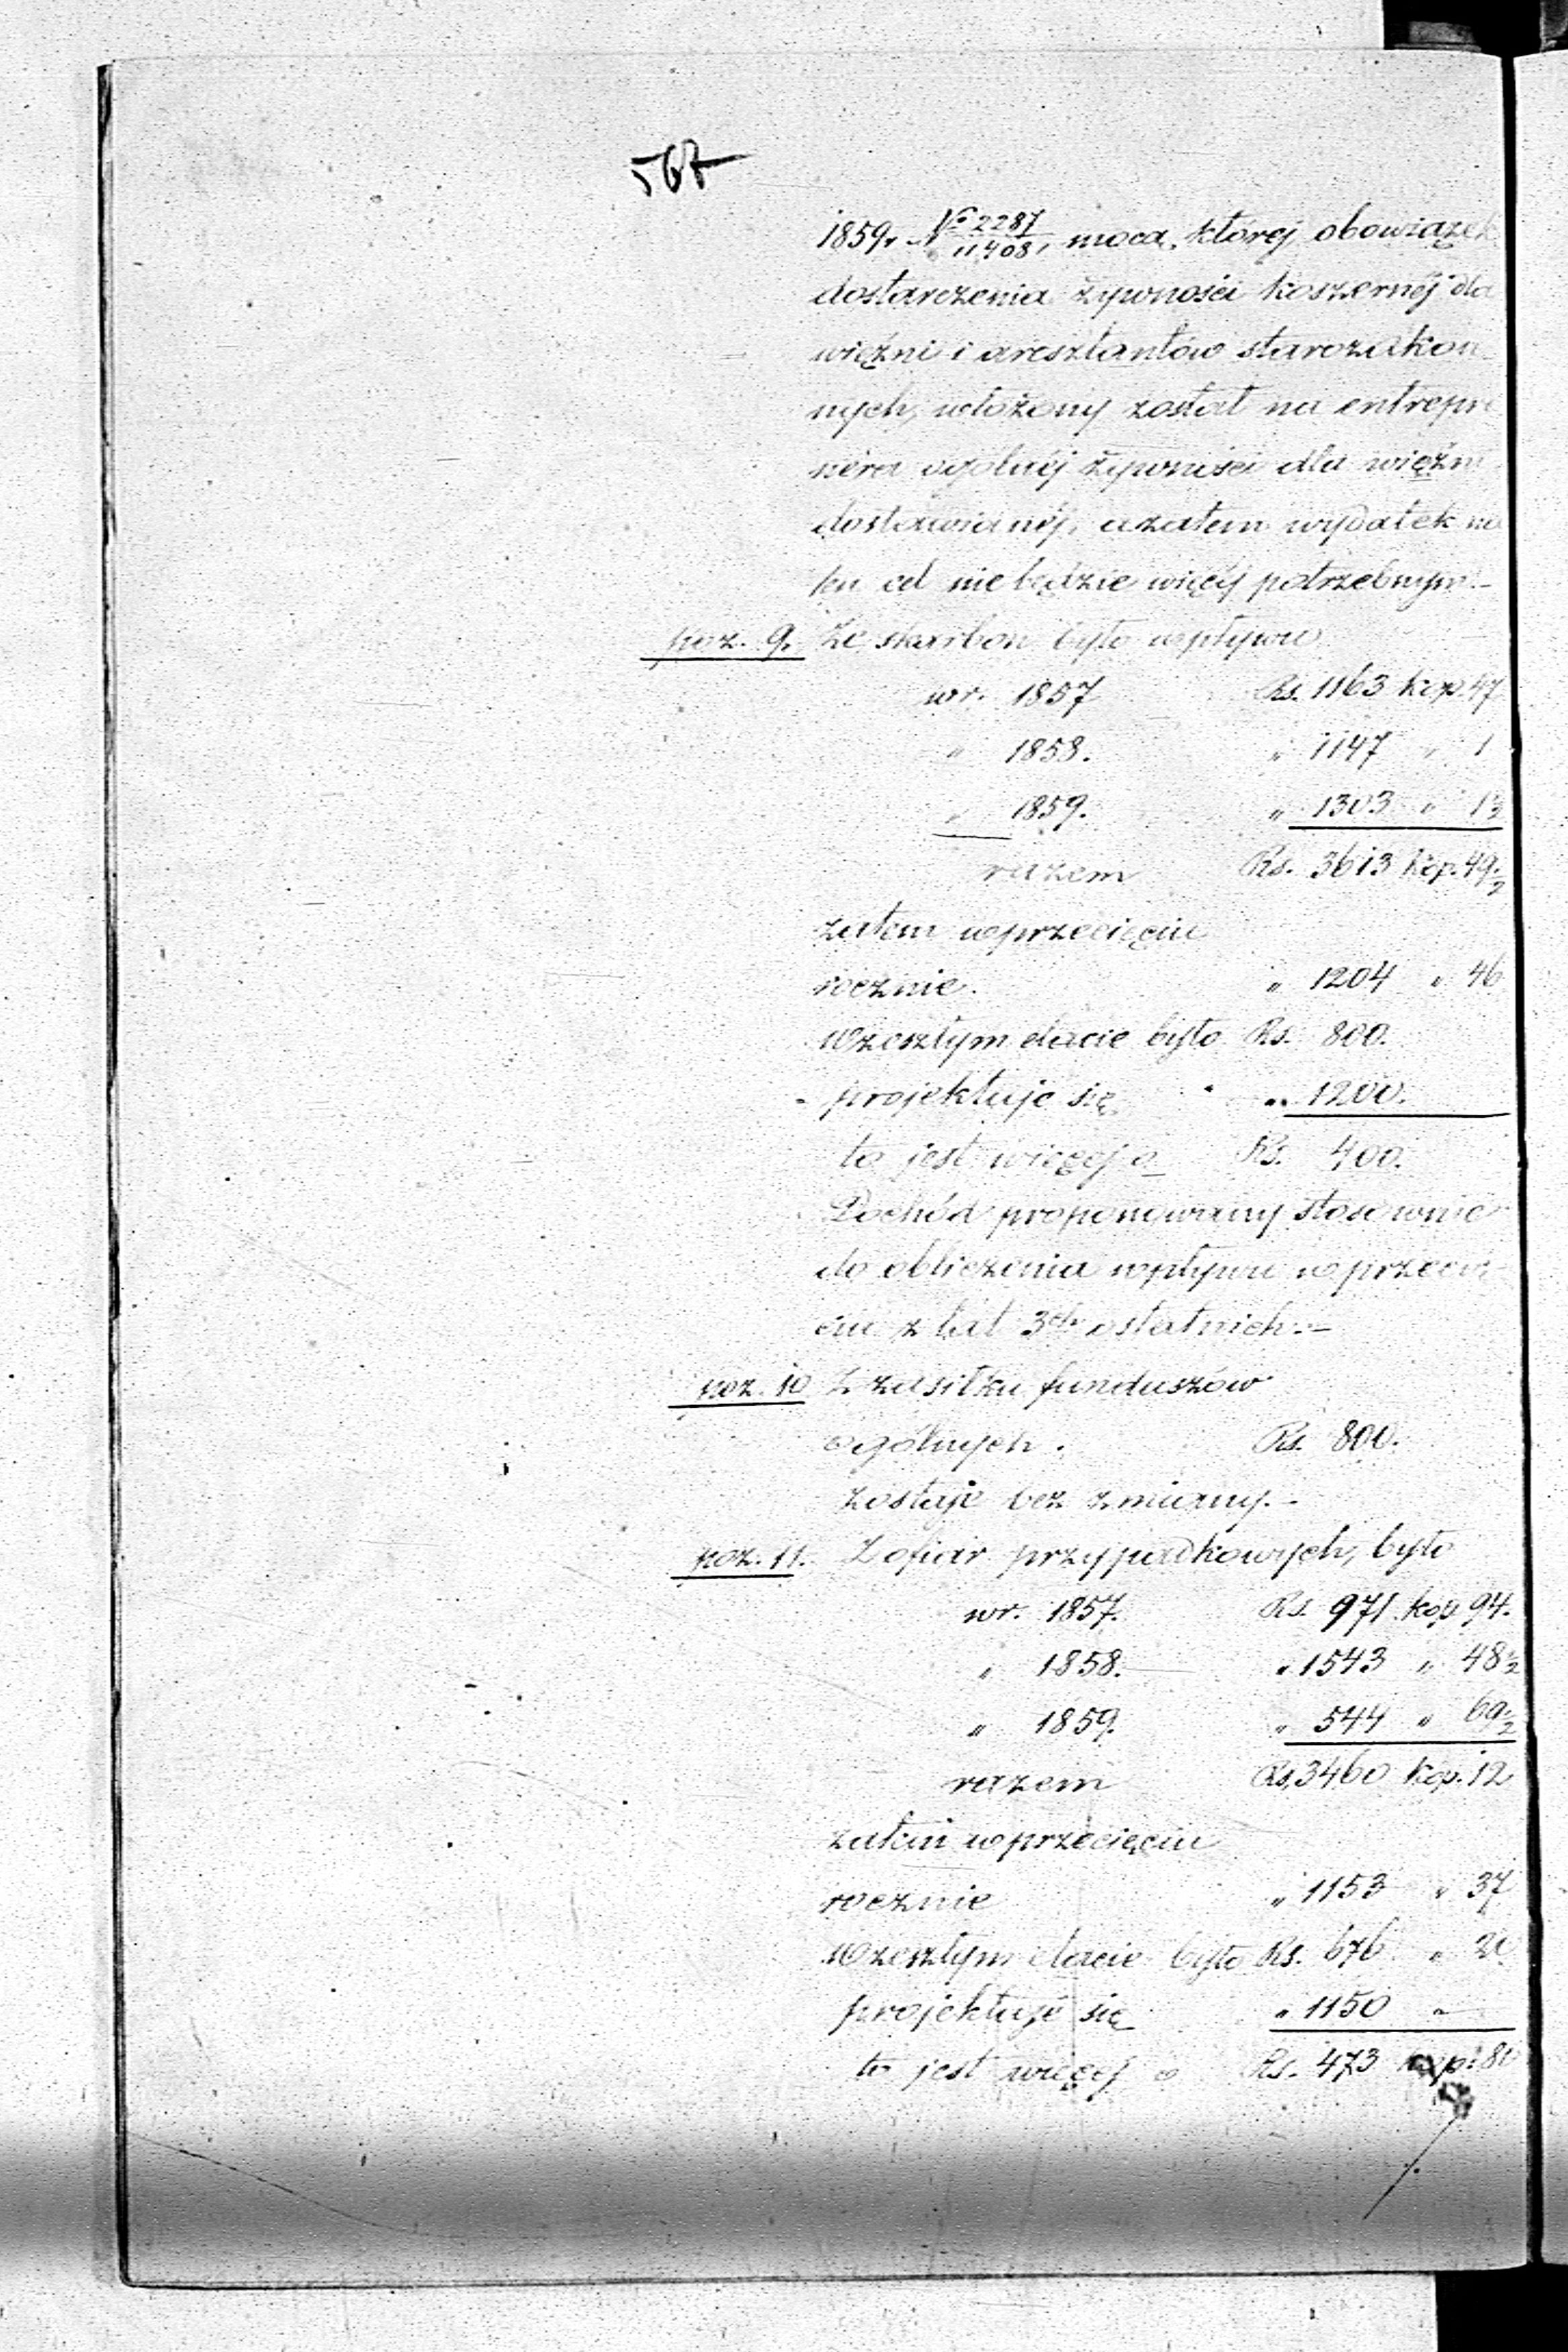 567
1859. N° 2287/11408, mocą której obowiązek
dostarczenia żywności koszernéj dla
więźni i aresztantów starozakon
nych, włożony został na entrepre
nera ogólnéj żywności dla więźni
dostawianéj, azatem wydatek na
ten cel nie będzie więcéj potrzebnym.–
poz. 9. Ze skarbon było wpływu
wr. 1857 Rs. 1163 kop. 47
" 1858. " 1147 " 1
" 1859. " 1303 " 1½
razem Rs. 3613 kop. 49½
zatem wprzecięciu
rocznie. " 1204 " 46
Wzeszłym etacie było Rs. 800.
projektuje się " 1200.
to jest więcej o Rs. 400.
Dochód proponowany stosownie
do obliczenia wpływu w przecię
ciu z lat 3ch ostatnich.–
poz. 10 Z zasiłku funduszów
ogólnych. Rs. 800.
zostaje bez zmiany.–
poz. 11. Z ofiar przypadkowych, było
wr. 1857. Rs. 971 kop. 94.
" 1858. " 1543 " 48½
" 1859. " 544 " 69½
razem Rs. 3460 kop. 12
zatem wprzecięciu
rocznie " 1153 " 37
Wzeszłym etacie było Rs. 676 " 20
projektuje się " 1150 "–
to jest więcej o Rs. 473 kop. 80